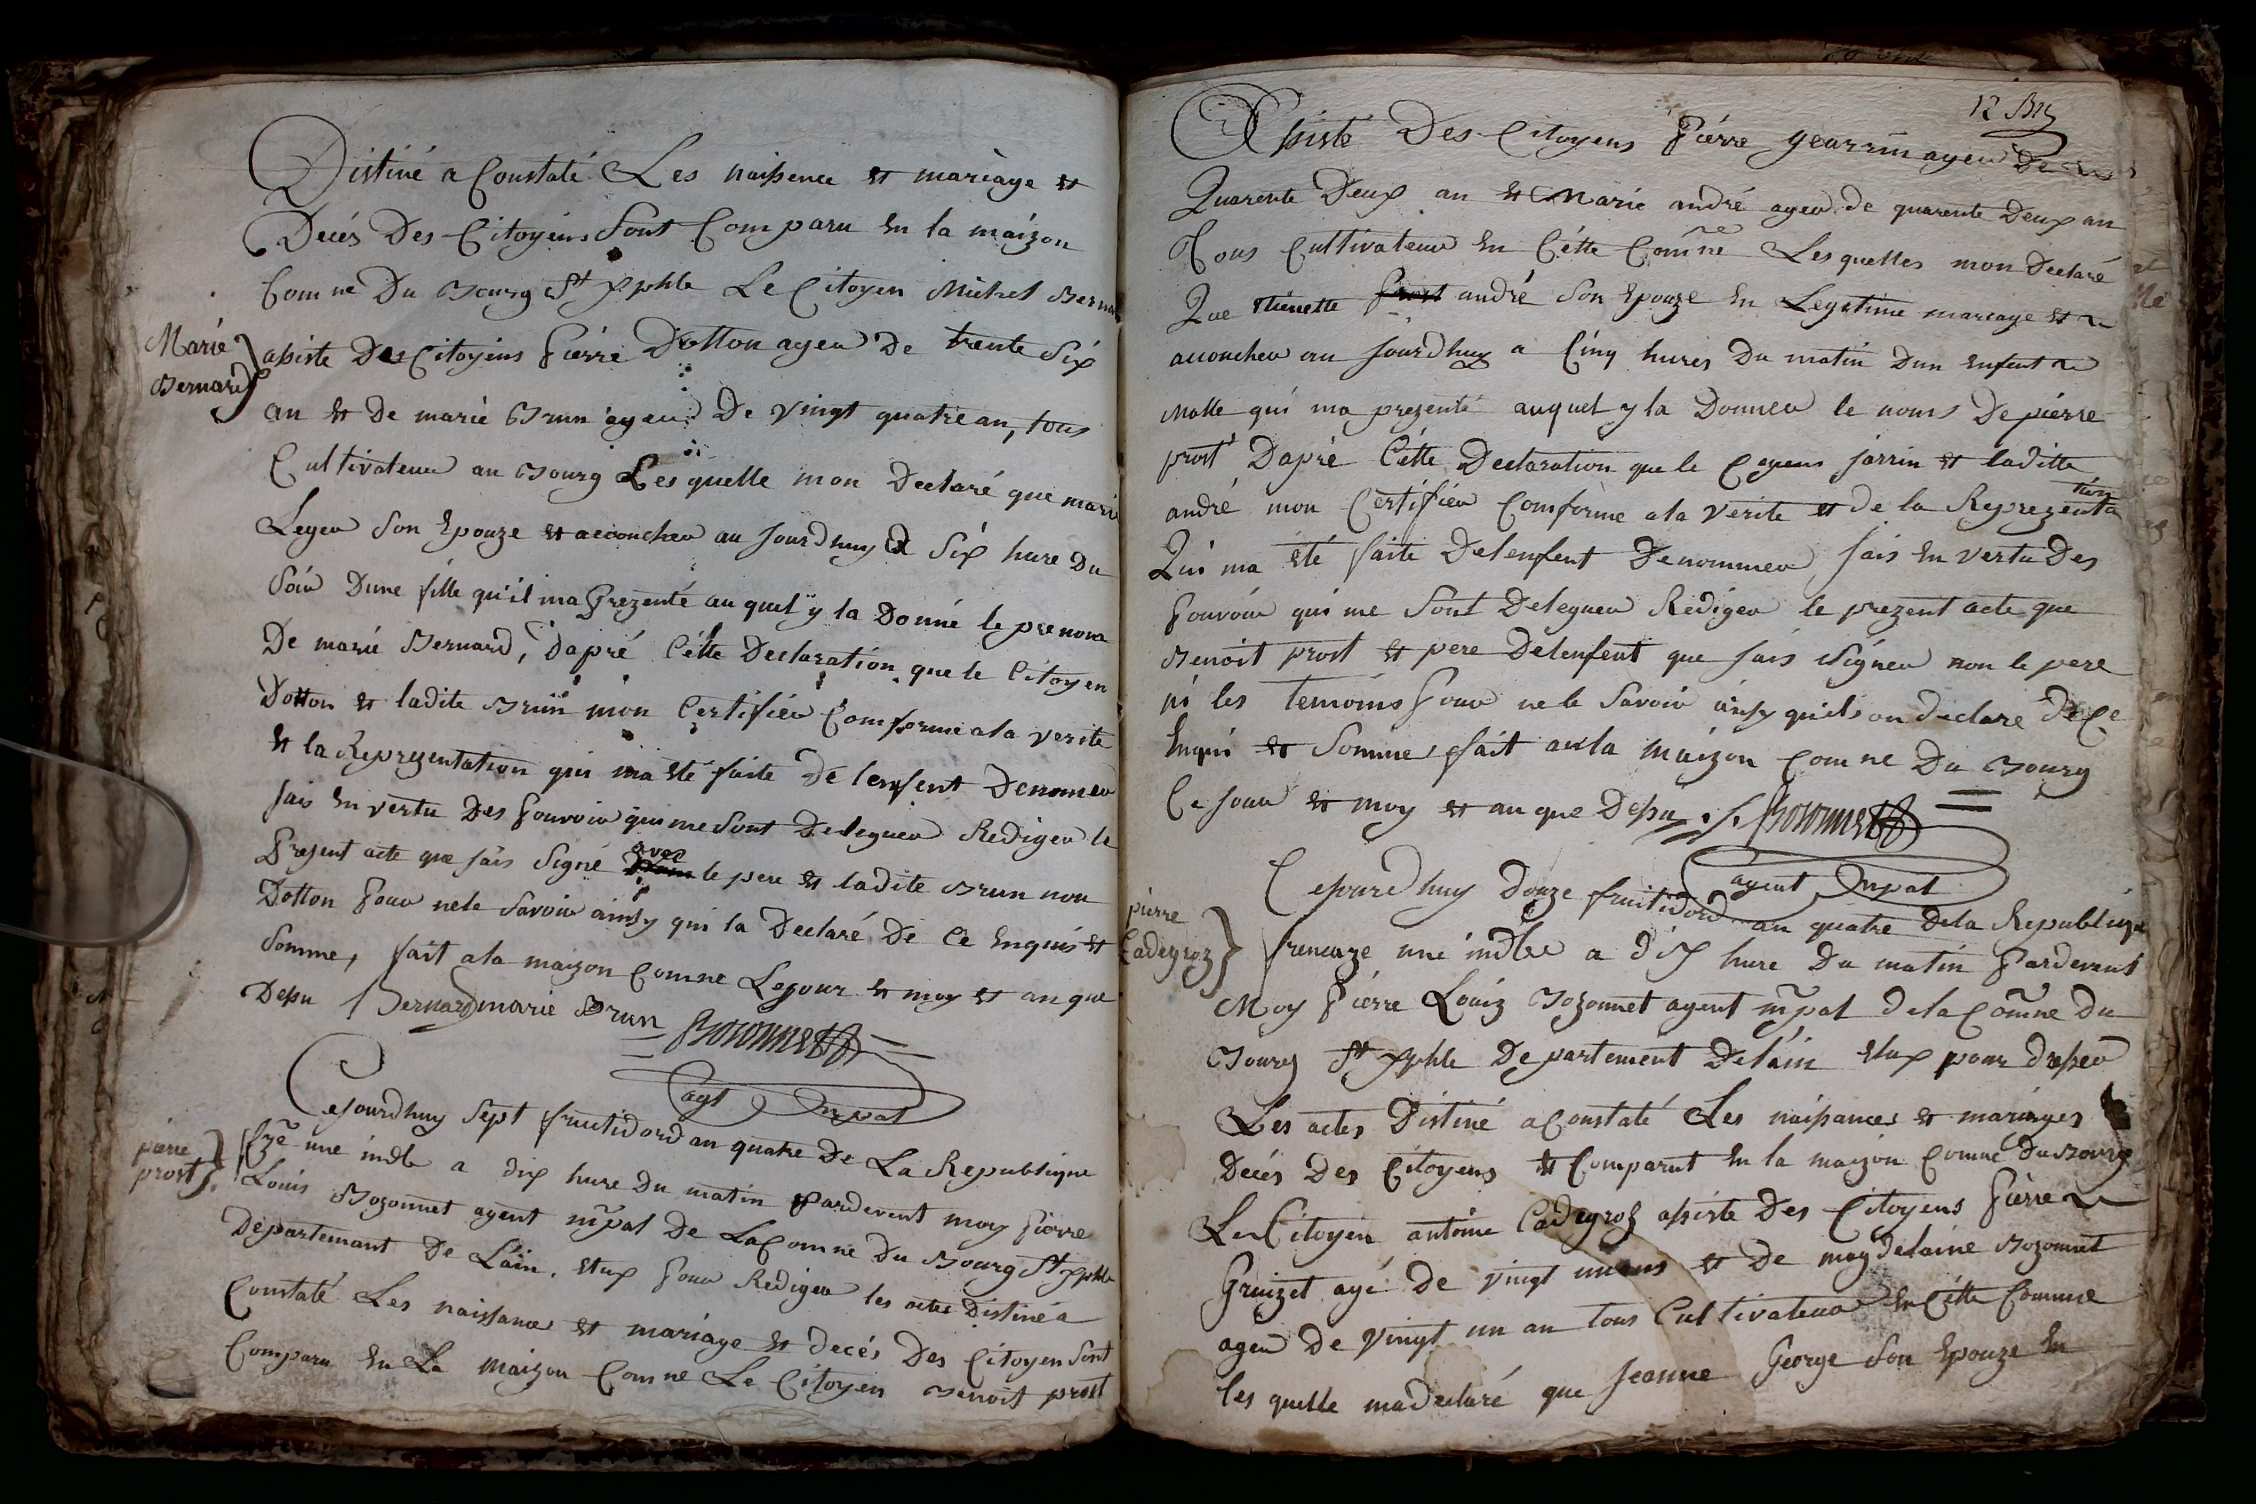 Distiné a Constaté Les naissence et mariage et
Decés Des Citoyens Sont Comparu En la maizon
Comne Du Bourg St Xphle Le Citoyen Michel Bernard
Marie
Bernard
assiste Des Citoyens Pierre Dotton ageu De trente Six
an et De marie Brun ageu De Vingt quatre an, tous
Cultivateur au Bourg Lesquelle mon Declaré que marie
Legeu Son Epouze et accouchee au Jourdhuy a Six hure Du
Soir Dune fille qu'il ma Prezenté auquel y la Donné le prenom
De marie Bernard, Dapré Cétte Declaration que le Citoyen
Dotton et ladite Brun mon Certifieu Comforme ala verite
et la Reprezentation qui ma eté faite De lenfent Denomeu
Jais En vertu Des Pouvoir qui me Sont Delegueu Redigeu le
Present acte que jais Signé avec le pere et ladite Brun non
Dotton Pour nele Savoir ainsy qui la Declaré De Ce Enquis et
Somme, fait ala maizon Comne Lejour et moy et an que
Desu Bernard marie Brun Bozonnet
agt mpal
pierre
prost
Cejourdhuy Sept fructidord an quatre De La Republique
fze une indle a dix hure Du matin Pardevent moy Pierre
Louis Bozonnet agent mpal De La Comne Du Bourg St Xphle
Departemant De L'ain, Elup Pour Redigeu les actes Distiné a
Constaté Les naissance et mariage et decés Des Citoyen Sont
Comparu En La maizon Comne Le Citoyen Benoit prost
12 Bis
Assisté Des Citoyens Piérre gearrin ageu De
Quarente Deux an et Marie andré ageu de quarente Deux an
Tous Cultivateur En Cétte Comne Lesquelles mon Declaré
Que Etienette Prost andré Son Epouze En Legetime mareage et
accoucheu au Jourdhuy a Cinq hures Du matin Dun Enfent
Malle qui ma prezenté auquel y la Donneu le noms De piérre
prost Dapré Cétte Declaration que le Cyoens jarrin et laditte
andré mon Certifieu Comforme ala verite et de la Reprezentation
Qui ma eté faite Delenfent Denommeu Jais En vertu Des
Pouvoir qui me Sont Delegueu Redigeu le prezent acte que
Benoit prost et pere Delenfent que jais Signeu non le pere
ni les temoins Pour nele Savoir ainsy quils on declare De Ce
Enquis et Somme, fait aula maizon Comne Du Bourg
Ce Jour et moy et an que Desu Bozonnet
agent mpal
pierre
Cadegroz
Cejourdhuy Douze fruitidord an quatre De la Republique
francaize une indle a dix hure Du matin Pardevent
Moy Piérre Louiz Bozonnet agent mpal De la Comne Du
Bourg St Xphle Departement De lain Elup pour dresseu
Les actes Distiné a Constaté Les naissances et mariages
Decés Des Citoyens et Comparut En la maizon Comne Du Bourg
Le Citoyen antoine Cadegroz assiste Des Citoyens Piérre
Gruizet agé De vingt un ans et De magdelaine Bozonnet
ageu De vingt un an tous Cultivateur En Cétte Comune
lesquelle ma declaré que Jeanne George Son Epouze En